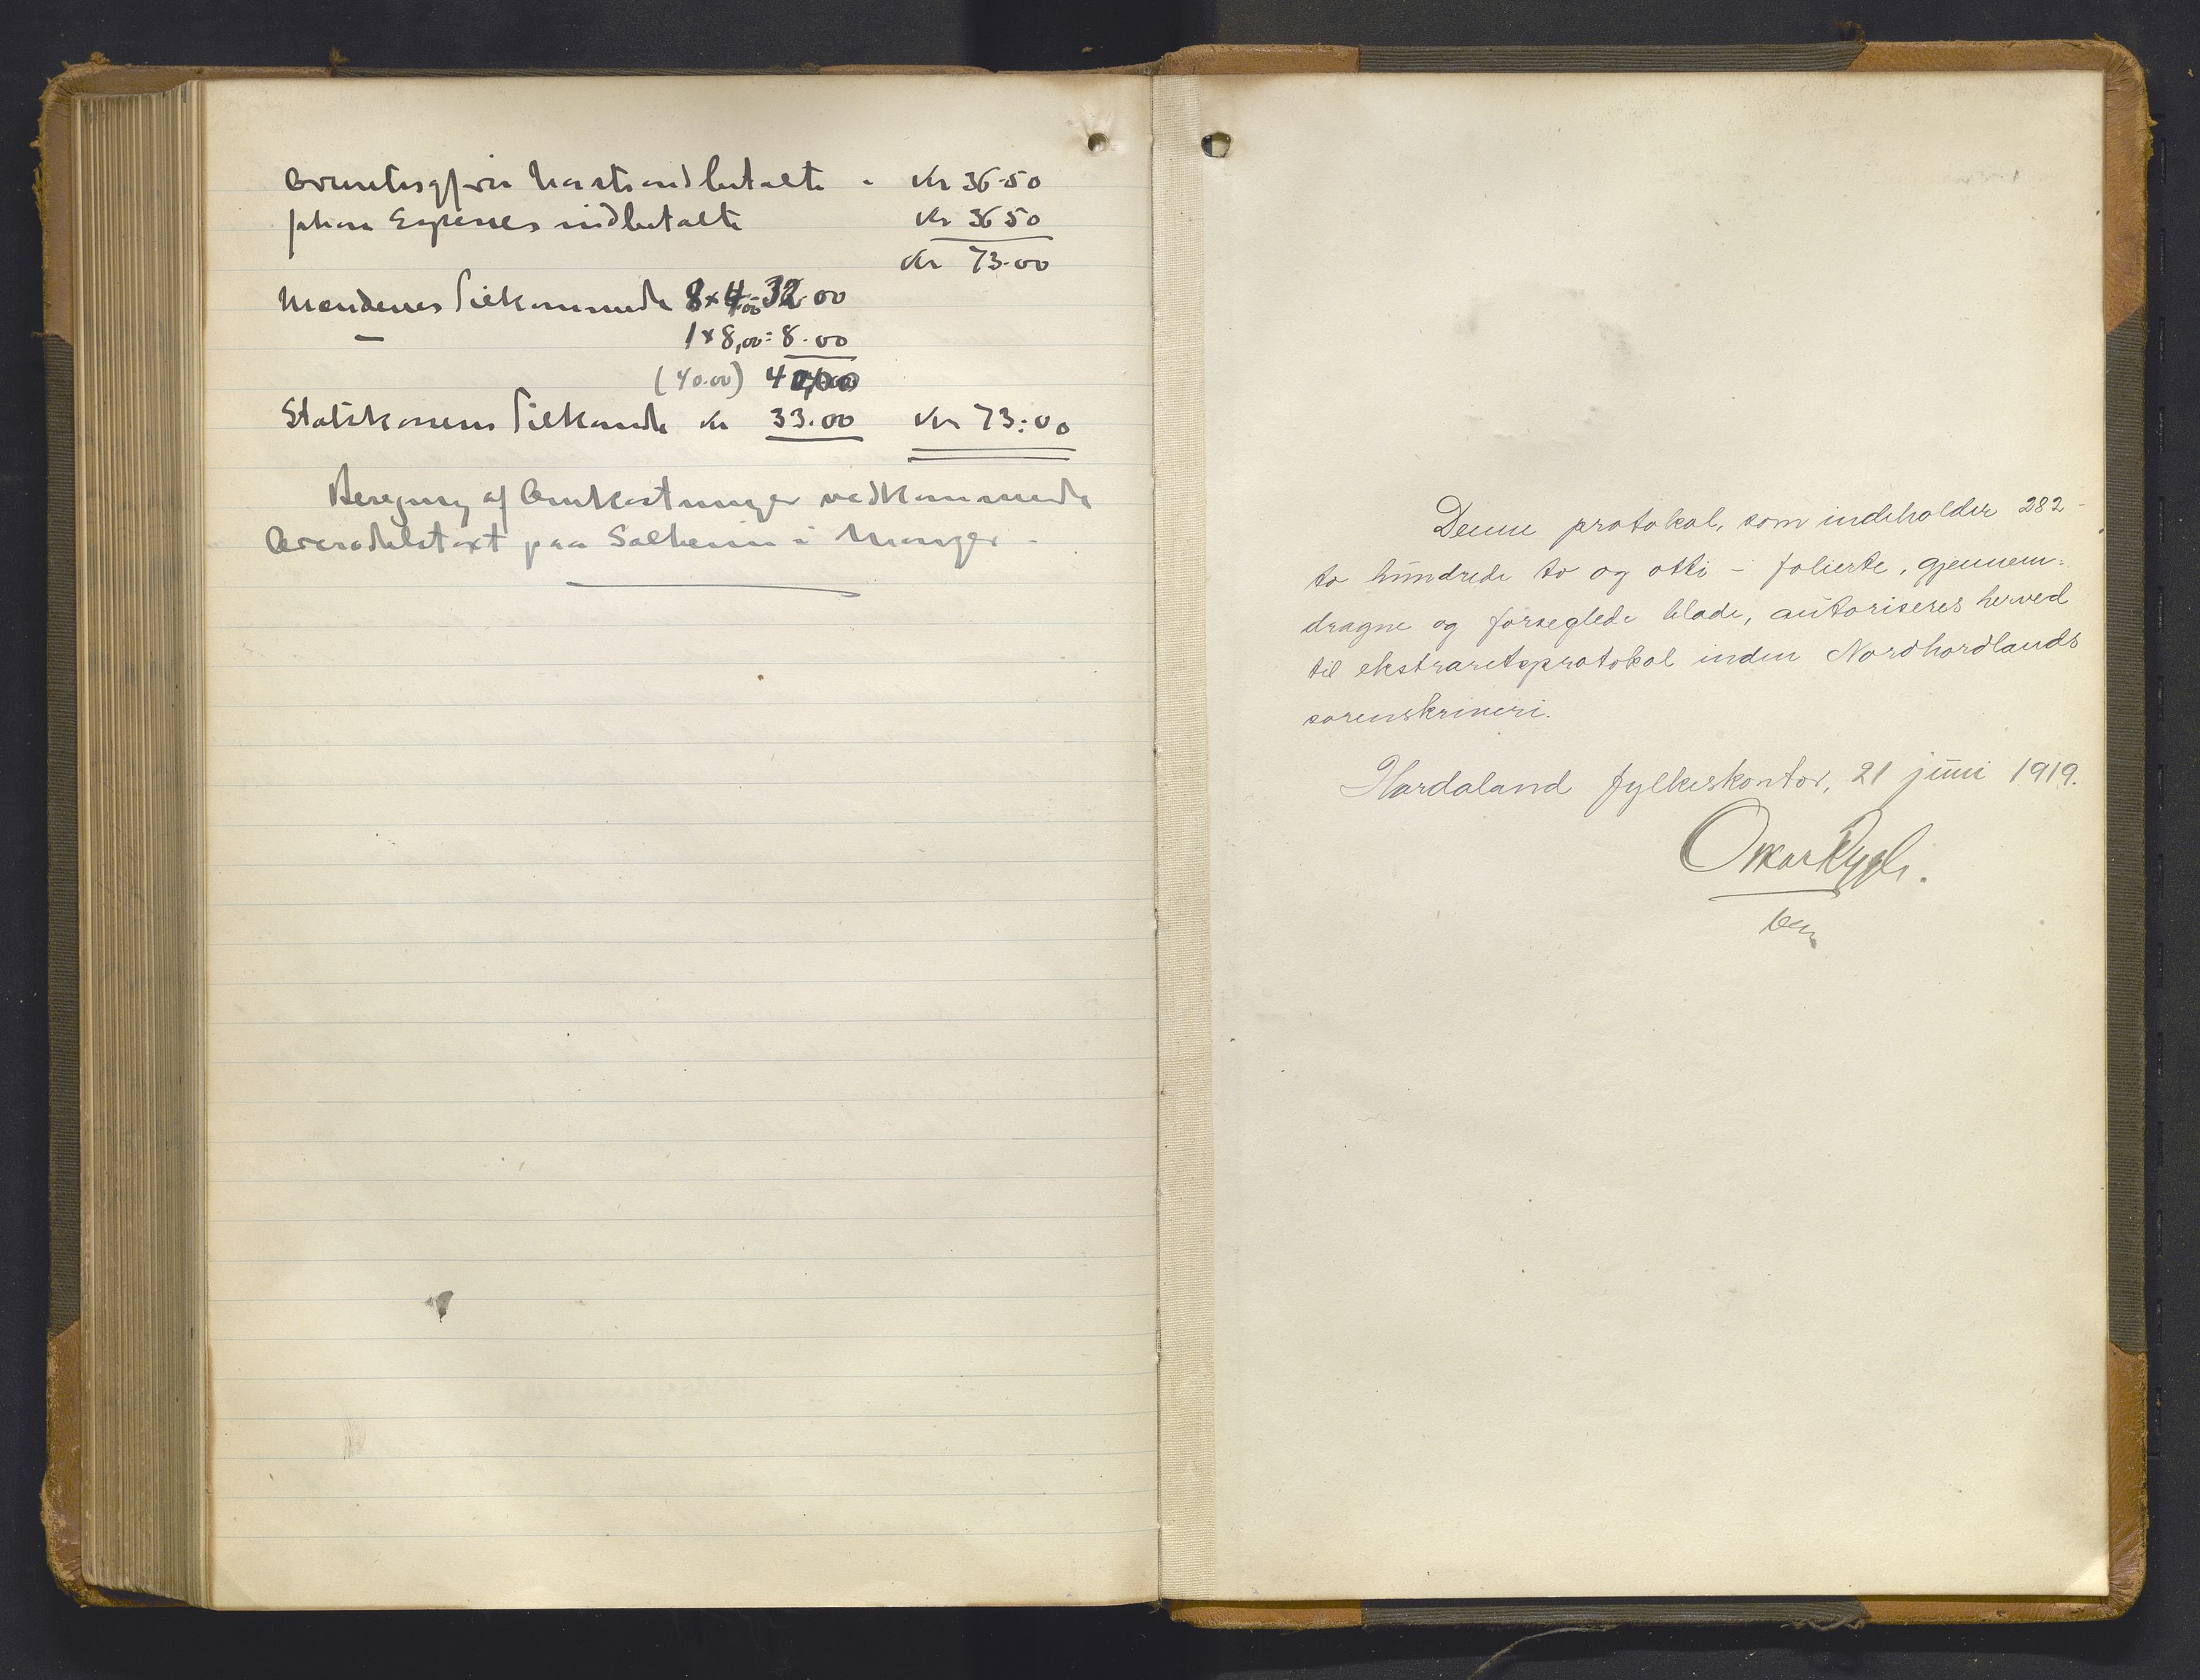 indbetalte - Kr 36.50
indbetalte Kr 36 50
Kr 73.00
Mændenes Tilkommende 8 x 4,00 = 32.00
— 1 x 8,00 = 8.00
(40.00) 40,00
Statskassens Tilkommende Kr 33.00 Kr 73.00
af Omkostninger vedkommende
paa Solheim i Manger -
Denne protokol, som indeholder 282 -
to hundrede to og otti - folierte, gjennem-
dragne og forseglede blade, autoriseres herved
til ekstraretsprotokol inden Nordhordlands
sorenskriveri.
Hordaland fylkeskontor, 21 juni 1919.